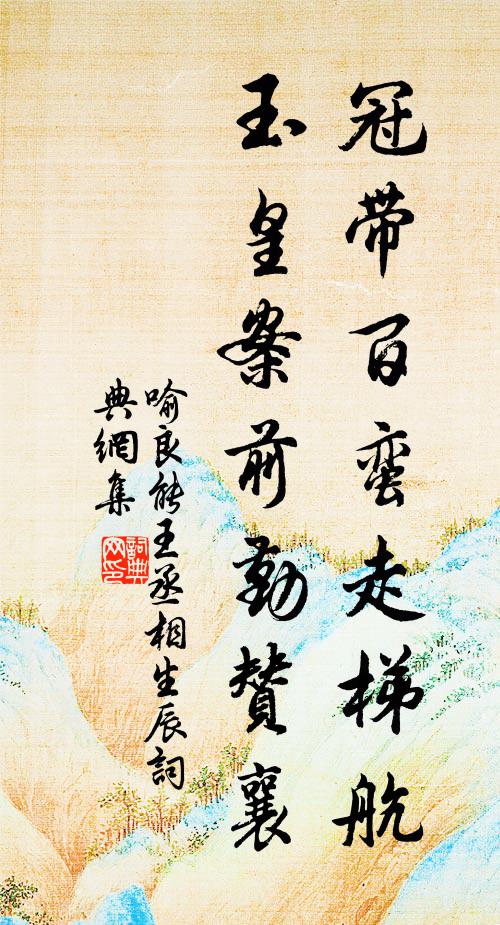 冠带百蛮走梯航
玉皇案前勤賛襄
喻良能王丞相生辰詞
典網集
詞典
网印